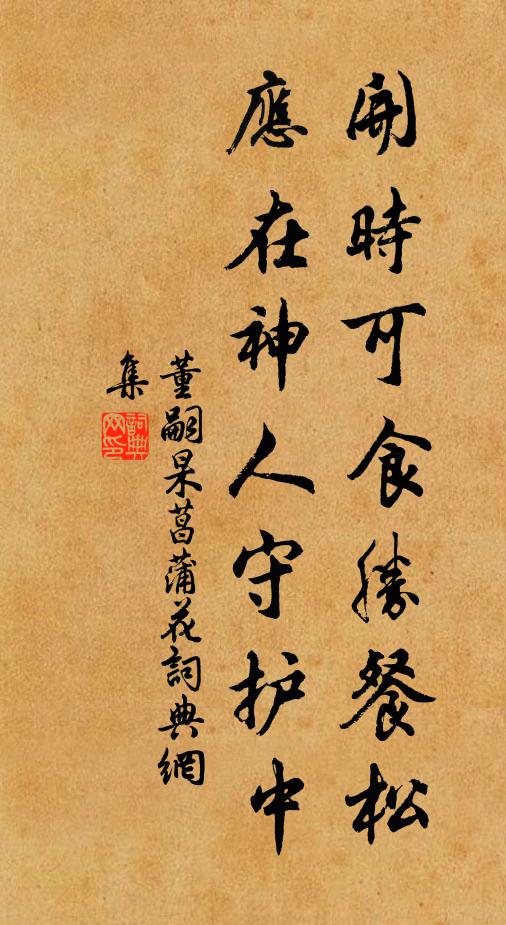 開時可食勝餐松
應在神人守护中
董嗣杲菖蒲花詞典網
集
詞典网印